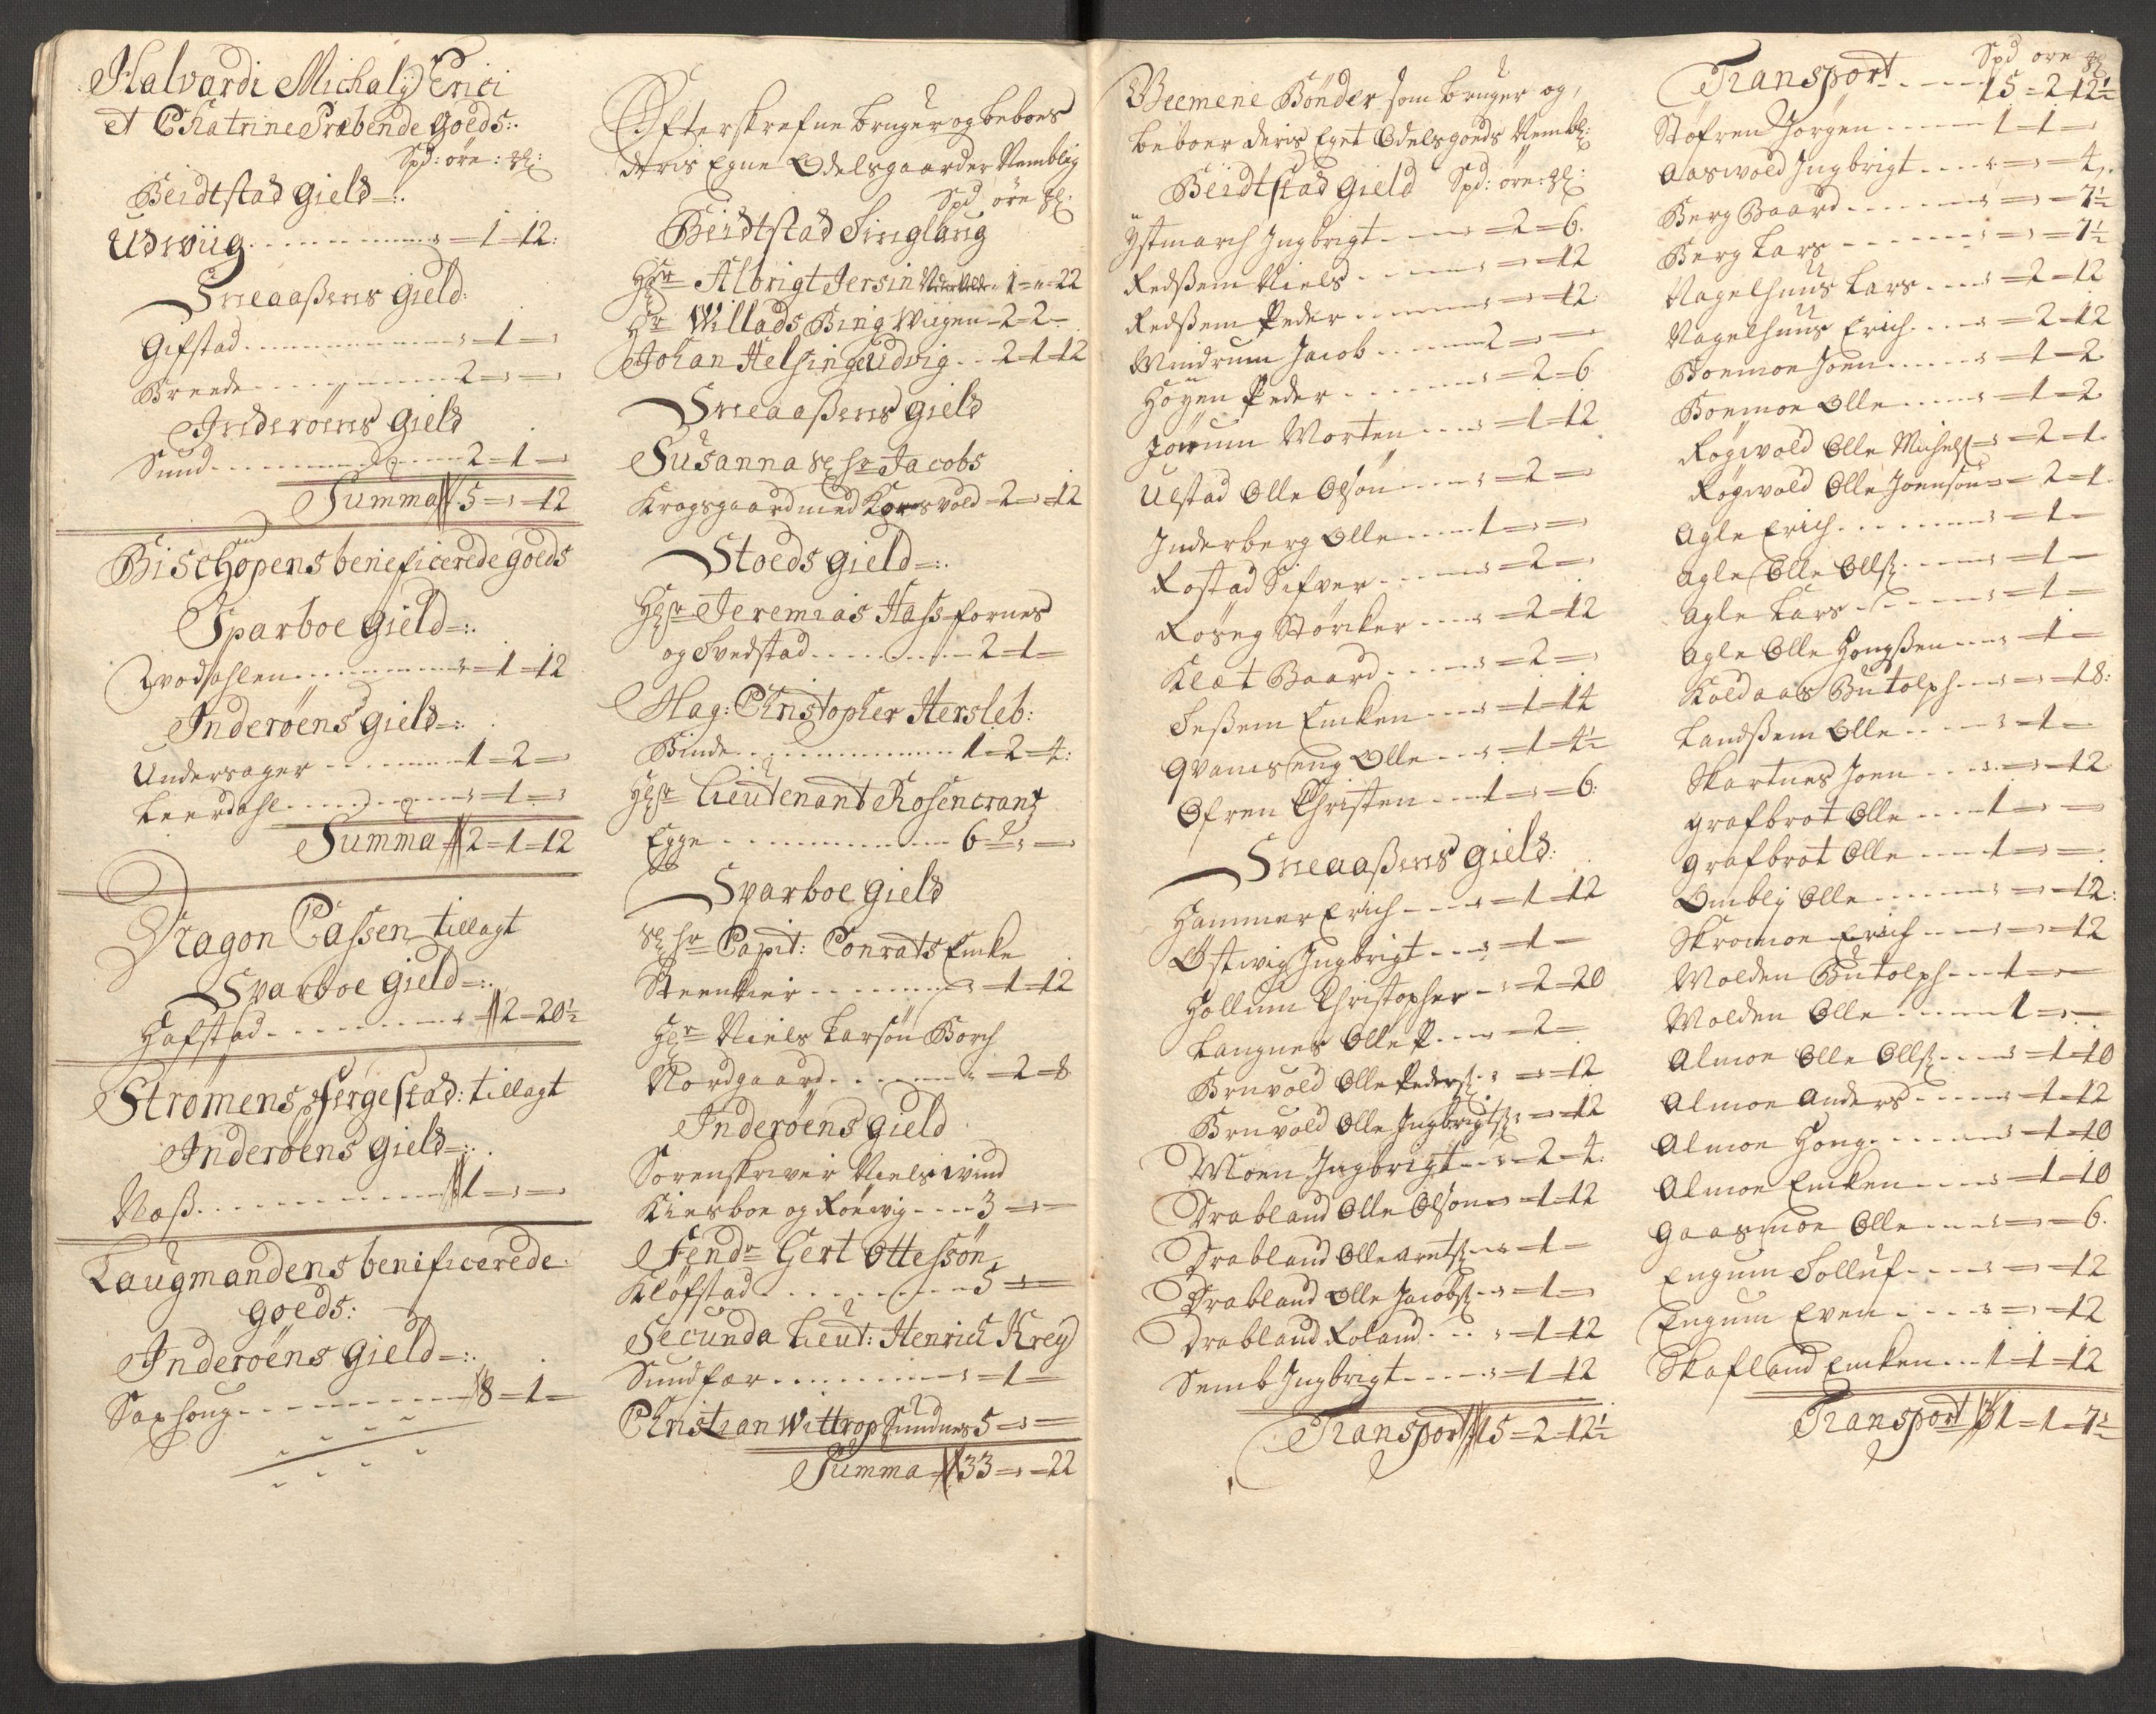 Halvardi Michalij Erici
et Chatrine Præbende goeds:
Spd: öre: 
Beidtstad gield
Udwiig - 1 - 12:
Sneaaßens gield:
Gifstad - 1 -
Breede 2 - -
Inderöens gield
Sund 2 - 1 -
Summa 5 - - 12
Bischopens beneficerede goeds
Sparboe gield
Qvadsahlen - 1 - 12
Inderöens gield
Undersager 1 - 2 -
Leerdahl - 1 -
Summa 2 - 1 - 12
Dragon Caßen tillagt
Sparboe gield
Hafstad - 2 - 20½
Strömens fergestad: tillagt
Inderöens gield
Naß 1 - -
Laugmandens benificerede
goeds:
Inderöens gield
Saxhoug 8 - 1 -
Efterskrefne bruger og beboer
deris Egne Odelsgaarder Nemblig
Spd öre
Beidtstad Tinglaug
Hr Albrigt Jersin 1 - - 22
Hr Willads Bing Wiigen - 2 - 2 -
Johan Helsing Udvig 2 - 1 - 12
Sneaaßens gield
Susanna Sl Hr Jacobs
Krogsgaard med Korsvold - 2 - - 12
Stoeds gield
Hr Jeremias Hass fornes
og Tvedstad 2 - 1 -
Mag: Christopher Hersleb:
Binde 1 - 2 - 4:
Hr Lieutenant Rosencrantz
Egge 6 - 2 -
Sparboe gield
Sl Hr Capit: Conrats Encke
Steenkier - 1 - 12
Hr Niels Larsön Borch
Nordgaard - 2 - 8
Inderöens gield
Sorenskriver Niels Wind
Kiesboe og Rörwig 3 - -
Fendr Gert Ottessön
Kløfstad 5 - -
Secunda Lieut: Henrich Krey
Sundfær - 1 -
Christian Wittrop Sundnes 5 - -
Summa 33 - - 22
Meemene Bönder som bruger og,
beboer deris Eget Odelsgoeds Nembl:
Beidtstad gield Spd: öre:
Ystmarch Ingbrigt - 2 - 6.
Redßem Niels - - 12
Redßem Peder - - 12:
Windrum Jacob 2 - -
Höyen Peder - 2 - 6
Jörum Morten - 1 - 12
Ulstad Olle Olsön - 2 -
Inderberg Olle 1 - -
Rostad Sifver - 2 -
Röseg Störcker - 2 - 12
Klæt Baard - 2 -
Seßem Encken - 1 - 14
Qvamseng Olle - 1 - 4½
Ofren Christen 1 - - 6:
Sneaaßens gield:
Hammer Erich - 1 - 12
Østwig Ingbrigt - 1 -
Hollum Christopher - 2 - 20
Langnes Olle P - 2 -
Bruvold Olle Peders - - 12
Bruvold Olle Ingbrigts - - 12
Moen Ingbrigt - 2 - 4:
Drabland Olle Olson - 1 - 12
Drabland Olle Arnts - 1 -
Drabland Olle Jacobs - 1 -
Drabland Roland - 1 - 12
Semb Ingbrigt - 1 - 12
Transport 15 - 2 - 12½
Spd öre
Transport 15 - 2 - 12½
Støfren Jörgen 1 - 1 -
Aaswold Ingbrigt - - 4,
Berg Baard - - 7½
Berg Lars - - 7½
Nagelhuus Lars - 2 - 12
Nagelhuus Erich - 2 - 12
Boemoe Joen - 1 - 2
Boemoe Olle - 1 - 2
Rögwold Olle Michels - 2 - 1.
Rögwold Olle Joensøn - 2 - 1.
Agle Erich - 1 -
Agle Olle Olls - 1 -
Agle Lars - 1 -
Agle Olle Hongßen - 1 -
Koldaas Butolph - - 18:
Landßem Olle - 1 -
Skartnes Joen - - 12
Grafbrot Olle 1 - -
Grafbrot Olle 1 - -
Ombly Olle - - 12:
Skromoe Erich - - 12
Molden Butolph 1 - -
Molden Olle 1 - -
Almoe Olle Olls - 1 - 10
Almoe Anders - 1 - 12
Almoe Hong - 1 - 10
Almoe Encken - 1 - 10
Gaasmoe Olle - - 6.
Engum Tolluf - - 12
Engum Even - - 12
Skafland Encken 1 - 1 - 12
Transport 31 - 1 - 7½